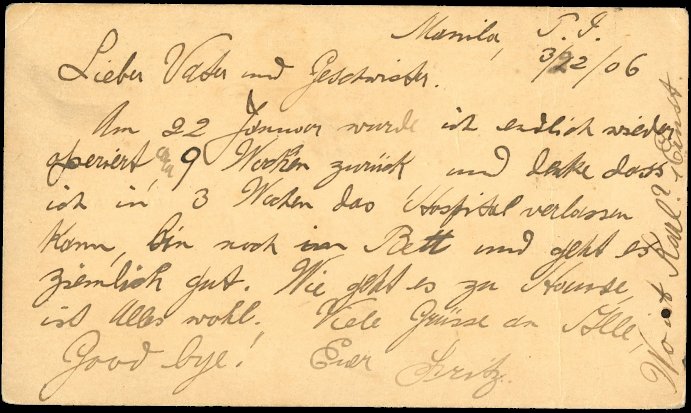 Manila, P. I.
3/22/06
Lieber Vater und Geschwister.
Am 22 Januar wurde ich endlich wieder
operiert, 9 Wochen zurück und denke dass
ich in 3 Wochen das Hospital verlassen
kann, bin noch im Bett und geht es
ziemlich gut. Wie geht es zu Hause,
ist Alles wohl. Viele Grüsse an Alle,
Good bye! Euer Fritz.
Wo ist Karl? Ernst.